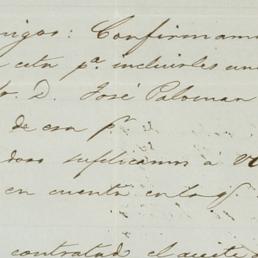 migos: Confirmam
esta pª incluirles un
D. José Palomar
de esa pª
suplicamos á V
en cuenta
contratad el aceite